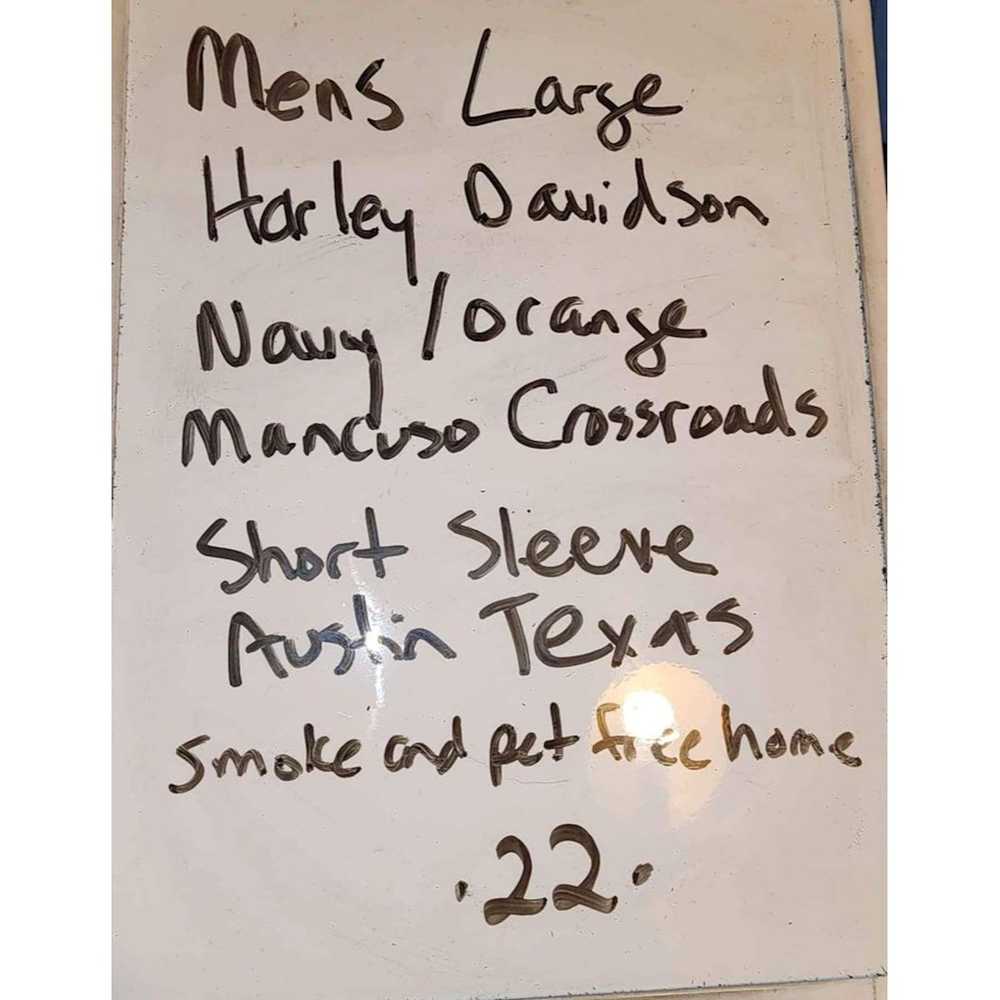 Mens Large
Harley Davidson
Navy / orange
Mancuso Crossroads
Short Sleeve
Austin Texas
smoke and pet free home
.22.